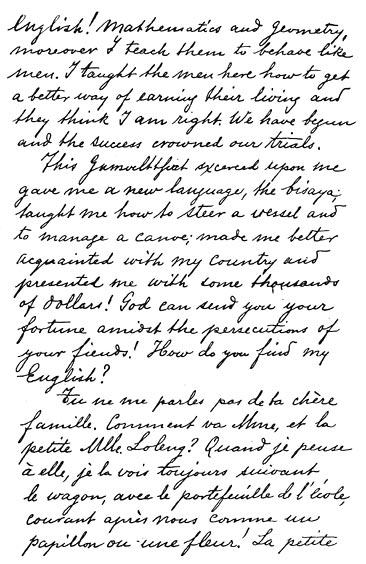 English! Mathematics and Geometry,
moreover I teach them to behave like
men. I taught the men here how to get
a better way of earning their living and
they think I am right. We have begun
and the success crowned our trials.
This Gewaltthat excerced upon me
gave me a new language, the bisaya;
taught me how to steer a vessel and
to manage a canoe; made me better
acquainted with my country and
presented me with some thousands
of dollars! God can send you your
fortune amidst the persecutions of
your fiends! How do you find my
English?
Tu ne me parles pas de ta chère
famille. Comment va Mme, et la
petite Mlle. Loleng? Quand je pense
à elle, je la vois toujours suivant
le wagon, avec le portefeuille de l'école,
courant après nous comme un
papillon ou une fleur! La petite